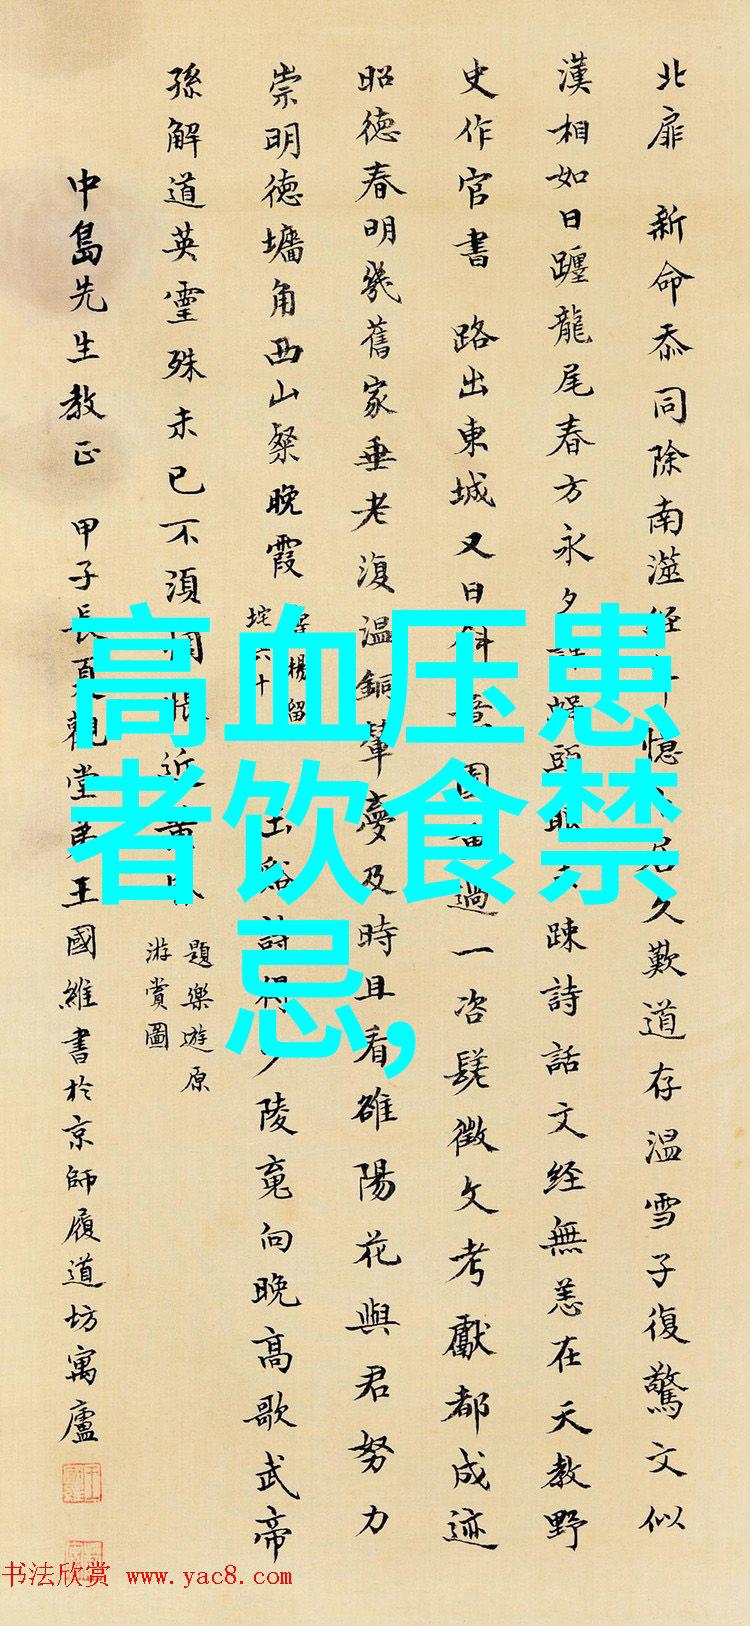 北扉 新命忝同除南澨經年憶
久歎道存温雪子復驚文似
漢相如日躔龍尾春方永夕
頭
踈詩話文經無恙在天教野
史作官書 路出東城又日斜
過一咨嗟徵文考獻都成迹
昭德春明幾舊家垂老復温銅輦夢及時且看雒陽花與君努力
崇明德墉角西山粲晚霞
垞六十
楊留
玉谿詩
少陵竟向晚高歌武帝
孫解道英靈殊未已不須惆悵近黄昏
題樂遊原
游賞圖
中島先生教正 甲子長夏觀堂弟王國維書於京師履道坊寓廬
高血压患
者饮食禁
忌,
书法欣赏 www.yac8.com